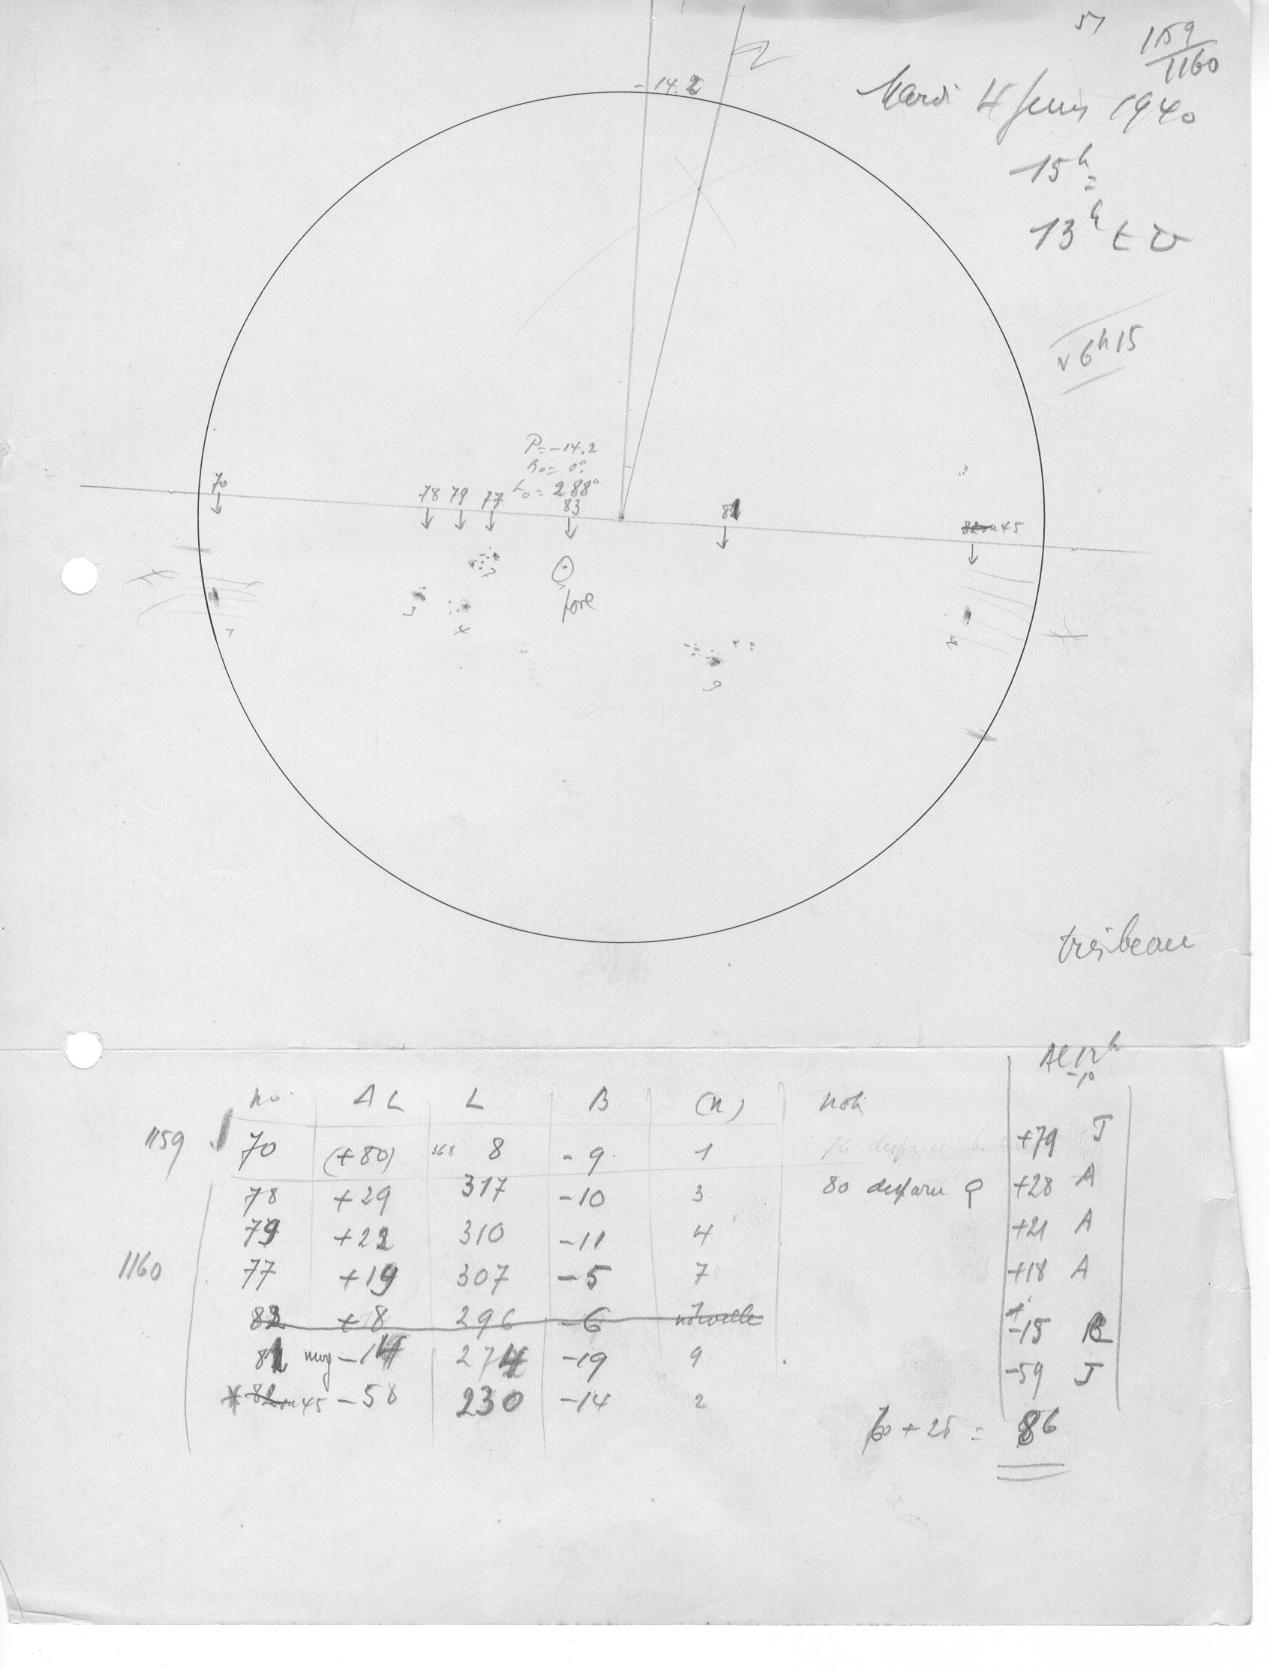 57
1159
1160
Mardi 4 Juin 1940
15h =
13h t v
√6h15
-14.2
P=-14.2
B0= 0°
L0= 288°
70
78 79 77 83 81 82 45
3
7
4
fore
1
2
9
très beau
no. ΔL L B (n) note
1159 70 (+80) 368 8 -9 1 76 disparu
78 +29 317 -10 3 80 disparu
79 +22 310 -11 4
1160 77 +19 307 -5 7
83 +8 296 -6 nouvelle
81 -14 274 -19 9
* 82 45 -58 230 -14 2
-10
+79 J
+28 A
+21 A
+18 A
-15
-59 J
60 + 26 = 86